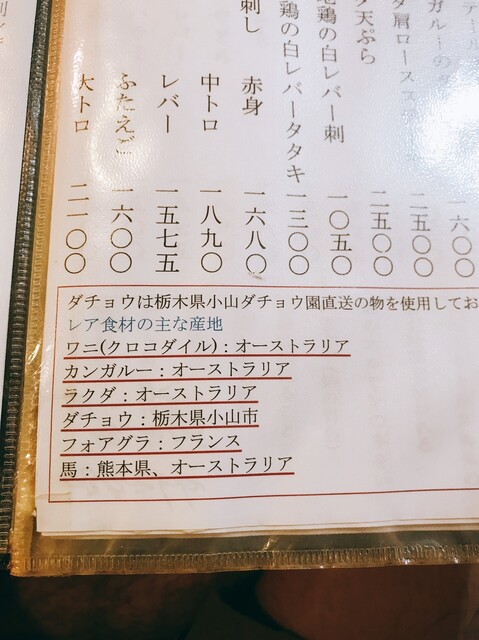 二五〇〇
二五〇〇
地鶏の白レバー刺 一〇五〇
地鶏の白レバータタキ 一三〇〇
刺し 赤身 一六八〇
中トロ 一八九〇
レバー 一五七五
ふたえご 一六〇〇
大トロ 二一〇〇
ダチョウは栃木県小山ダチョウ園直送の物を使用してお
レア食材の主な産地
ワニ(クロコダイル)：オーストラリア
カンガルー：オーストラリア
ラクダ：オーストラリア
ダチョウ：栃木県小山市
フォアグラ：フランス
馬：熊本県、オーストラリア